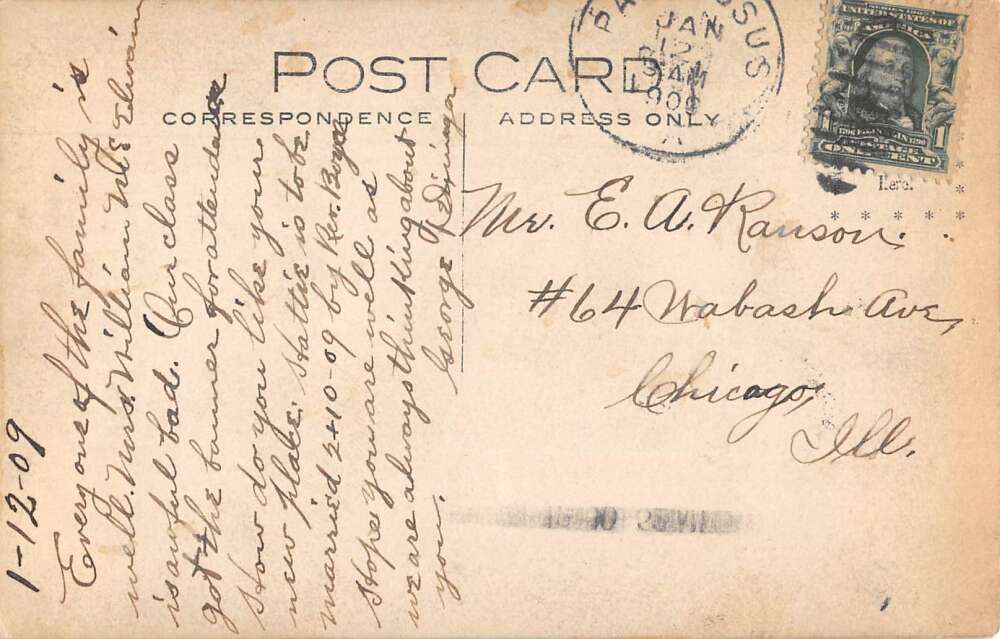 POST CARD
CORRESPONDENCE
ADDRESS ONLY
JAN
12
9 AM
1909
SERIES 1902
UNITED STATES OF
AMERICA
1706 FRANKLIN 1790
POSTAGE
1 ONE CENT 1
Here.
1-12-09
Every one of the family is
well. Mrs. William Mc Elwain
is awful bad. Our class
got the banner for attendance
How do you like your
new place. Hattie is to be
married 2+10-09 by Rev. Boyer
Hope you are well as
we are always thinking about
you.
George
Mr. E. A. Ranson.
#64 Wabash Ave,
Chicago,
Ill.